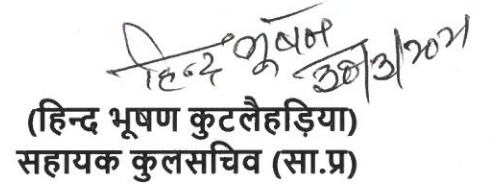 हिन्द भूषण
30/3/2021
(हिन्द भूषण कुटलैहड़िया)
सहायक कुलसचिव (सा.प्र)